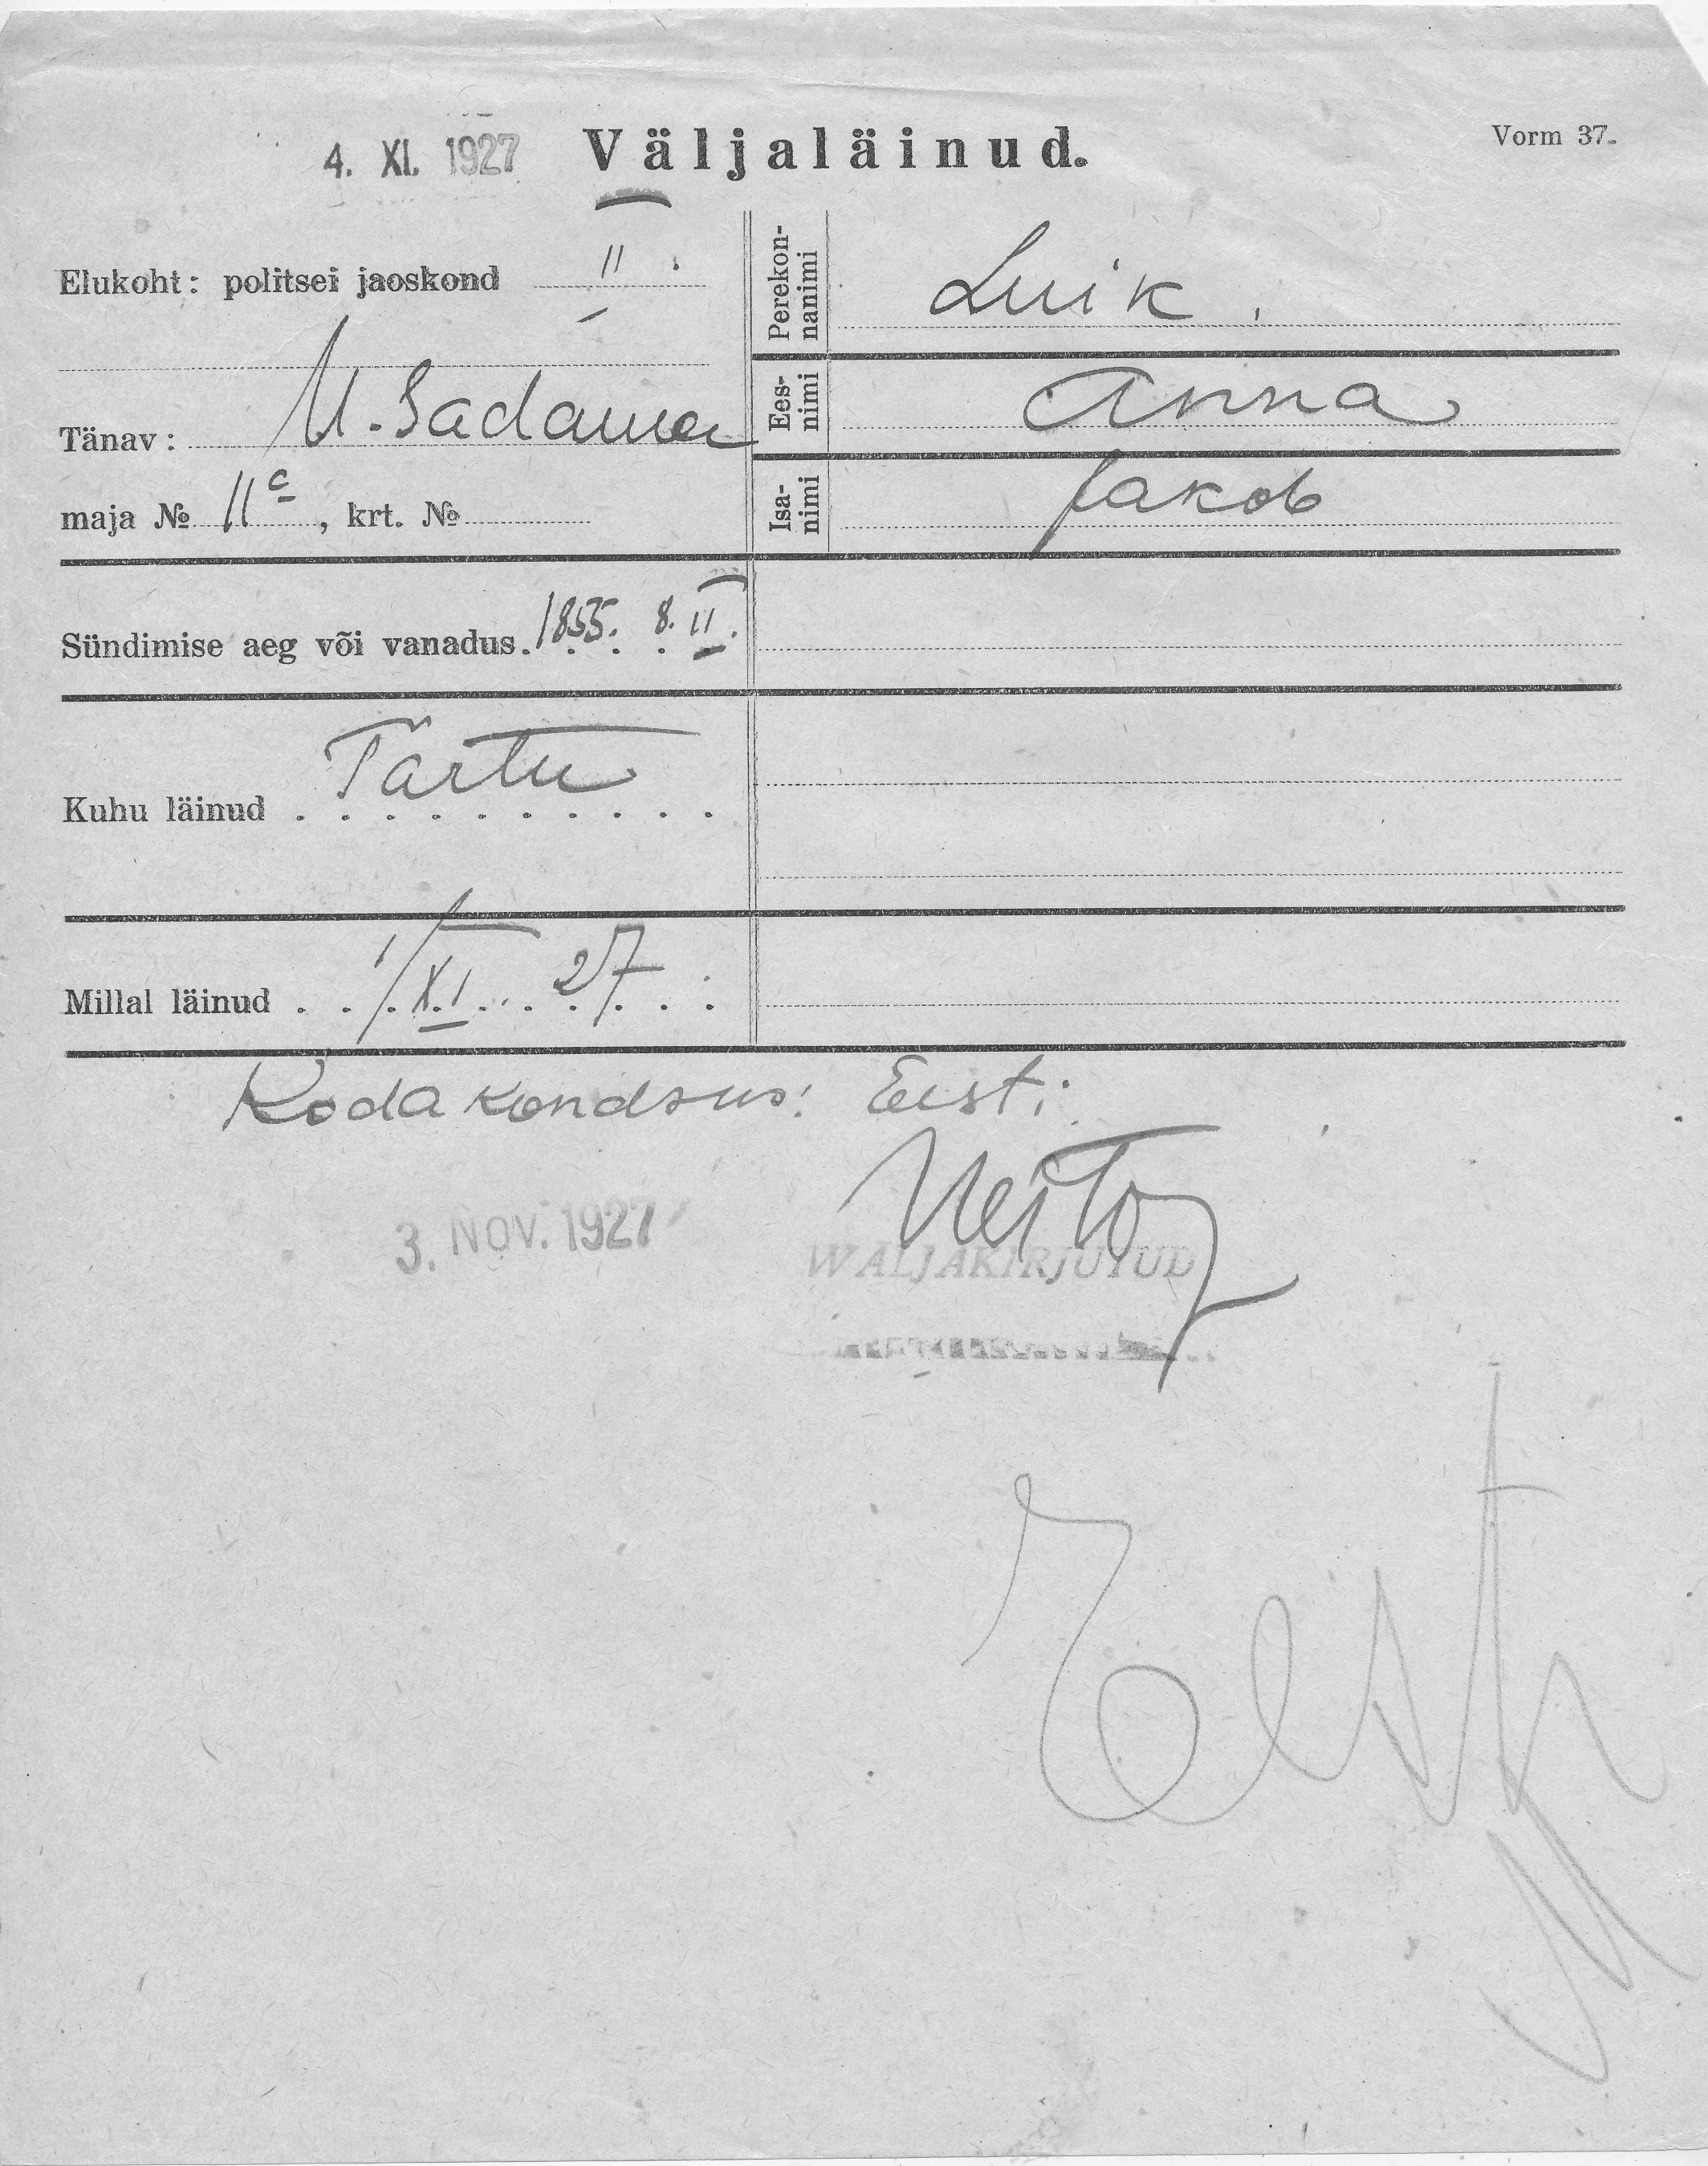 4. XI. 1927 Väljaläinud. Vorm 37.
Elukoht: politsei jaoskond II.
Tänav: U. Sadama
maja № 11c, krt. №
Perekonnanimi Luik.
Eesnimi Anna
Isanimi Jakob
Sündimise aeg või vanadus. 1855. 8. II.
Kuhu läinud Tartu
Millal läinud 1/XI 27
Kodakondsus: Eesti
3. NOV. 1927
WALJAKIRJUTUD
Eesti